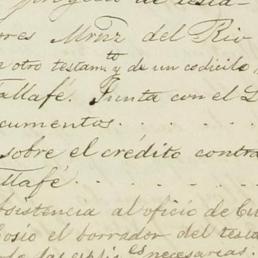 proyecto de testa-
ores Mrnz del Rio
n otro testamto y de un codicilo,
allafé. Junta con el L
ocumentos . . . .
sobre el crédito contra
llafé. . . . .
sistencia al oficio de Cu
osio el borrador del testa
necesarias.